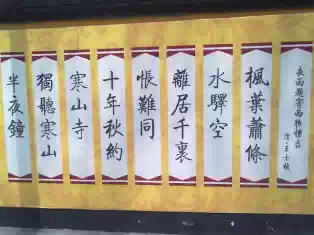 夜雨題寄西樵禮吉
清·王士禎
楓葉蕭條
水驛空
離居千裏
悵難同
十年秋約
寒山寺
獨聽寒山
半夜鐘